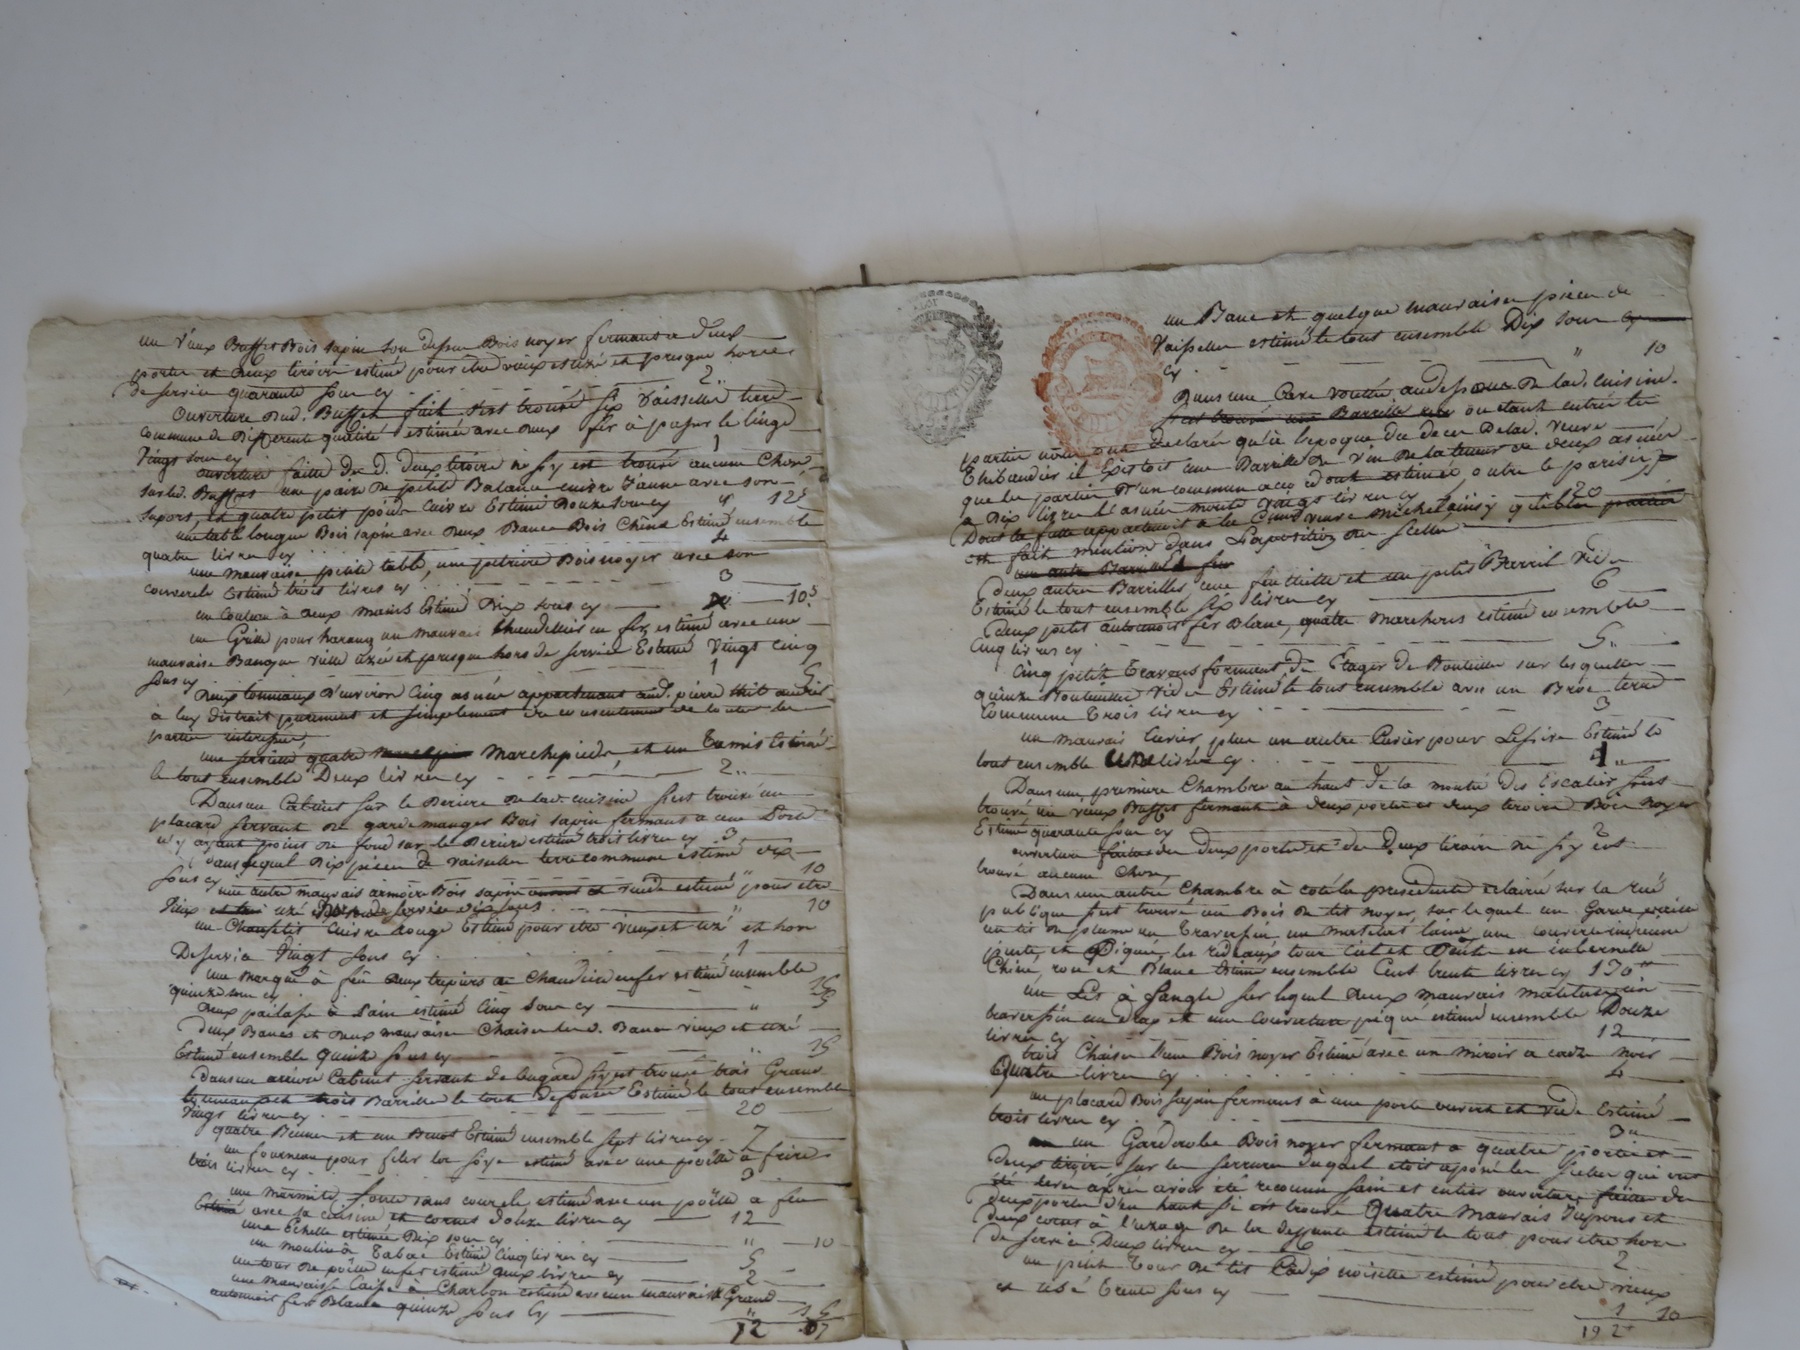 un Vieux Buffet Bois sapin son dessus Bois noyer fermant a deux
portes et deux tiroirs estimé pour etre vieux et uzé et presque hors
de service quarante sous cy 2
Ouverture dud. Buffet fait s'est trouvé six Vaisselles terre
commune de Differente qualité estimée avec deux fer à passer le linge
Vingt sous cy 1
ouverture faitte de d. deux tiroirs ne s'y est trouvé aucune Chose
sur led. Buffet une paire de petite Balance cuivre Jaune avec son
suport, et quatre petit poids Cuivre Estimé Douze sous cy " 12s
une table longue Bois sapin avec deux Bancs Bois Chêne Estimé ensemble
quatre livres cy 4
une mauvaise petite table, une petriere Bois noyer avec son
couvercle Estimé trois livres cy 3
un Couteau à deux mains Estimé Dix sous cy 10s
un Grille pour harang un mauvais Chandellier en fer, estimé avec une
mauvaise Banque vieille uzée et presque hors de service Estimé Vingt cinq
sous cy 1 5
Deux tonneaux d'environ Cinq asnées appartenant aud. pierre
à luy distrait purement et simplement du consentement de toutes les
parties
une quatre Marchepieds, et un Tamis Estimé
le tout ensemble Deux livres cy 2"
Dans un Cabinet sur le Deriere de lad. cuisine s'est trouvé un
placard servant de gardemanger Bois sapin fermant a une Porte
n'y ayant point de fond sur le Deriere estimé trois livres cy 3
dans lequel Dix pieces de vaisselles terre commune estimé dix
sous cy 10
une autre mauvais armoire Bois sapin vuide estimé pour etre
Vieux uzé hors de service dix sous " 10
un Cuivre Rouge Estimé pour etre vieux et uzé et hors
De service Vingt sous cy 1
une marque à feu deux trepiers de Chaudiere en fer estimé ensemble
quinze sous cy 15
Deux pailasse à Pain estimé Cinq sous cy " 5
deux Bancs et deux mauvaises Chaises lesd. Bancs vieux et uzé
Estimé ensemble quinze sous cy " 15
dans un arriere Cabinet servant de s'y est trouvé trois Grands
tonneaux et trois Barrilles le tout Estimé le tout ensemble
Vingt livres cy 20
quatre Bennes et un Benot Estimé ensemble sept livres cy 7
un fourneau pour filer la soye estimé avec une poëlle à frire
trois livres cy 3
une marmite fonte sans couvercle estimé avec un poëlle a feu
Estimé avec sa cuisine et cornet douze livres cy 12
une Echelle estimée Dix sous cy " 10
un moulin à Tabac Estimé Cinq livres cy 5
un tour de poële en fer estimé deux livres cy 2
une mauvaise Caisse à Charbon estimé avec un mauvais Grand
antonnoit fer Blanc quinze sous cy " 15
un Banc et quelque mauvaises pieces de
Vaisselles estimé le tout ensemble Dix sous
cy " 10
Dans une Cave Voutée au dessous de lad. Cuisine
s'est trouvé une Barrille ou etant entrée les
parties nous ont declaré qu'à l'epoque du deces De lad. Veuve
Thibaudier il Existoit une Barrille de Vin De la teneur de deux asnées
que les parties D'un commun accord ont estimée outre le parisis
a Dix livres l'asnée monte vingt livres cy 20
Dont la futte appartenoit à la Veuve Michel ainsy qu'il
est fait mention dans L'aposition du scellé
une autre Barrille
deux autres Barrilles une feuillette et un petit Barril vide
Estimé le tout ensemble six livres cy 6
deux petit antonnois fer Blanc, quatre Marchons estimé ensemble
Cinq livres cy 5"
Cinq petit Travons formant de Etager de Bouteilles sur lesquelles
quinze Bouteilles vides Estimé le tout ensemble avec un Broc terre
Commune trois livres cy 3
un mauvais Cuvier plus un autre Cuvier pour Lessive Estimé le
tout ensemble une livre cy 1"
Dans une premiere Chambre au haut de la monté des Escalier s'est
trouvé un vieux Buffet fermant à deux portes et deux tiroirs Bois noyer
Estimé quarante sous cy 2
ouverture faite des deux portes et des Deux tiroirs ne s'y est
trouvé aucune Chose,
Dans une autre Chambre à coté la precedente eclairée sur la rue
publique s'est trouvé un Bois de lit noyer, sur lequel un Garde paille
un lit de plume un Traversin un matelat laine une couverte indienne
pointe et Piquée, les rideaux tour Ciel et Pente en
Chine, rose et Blanc Estimé ensemble Cent trente livres cy 130"
un Lit à sangle sur lequel deux mauvais matelat un
traversin un drap et une couverture piquée estimé ensemble Douze
livres cy 12
trois Chaises Bois noyer Estimé avec un miroir a cadre noir
Quatre livres cy 4
un placard Bois sapin fermant à une porte ouvert et vide Estimé
trois livres cy 3"
un Garderobe Bois noyer fermant a quatre portes et
deux tiroirs sur les serrures duquel etoit aposé les scelles qui ont
été levés après avoir été reconnu sain et entier ouverture faitte des
deux portes d'en haut s'i est trouvé Quatre Mauvais Jupons et
deux corset à l'uzage de la deffunte estimé le tout pour etre hors
de service Deux livres cy 2
un petit Tour De lit Cadix noisette estimé pour etre vieux
et uzé trente sous cy 1 10
192"